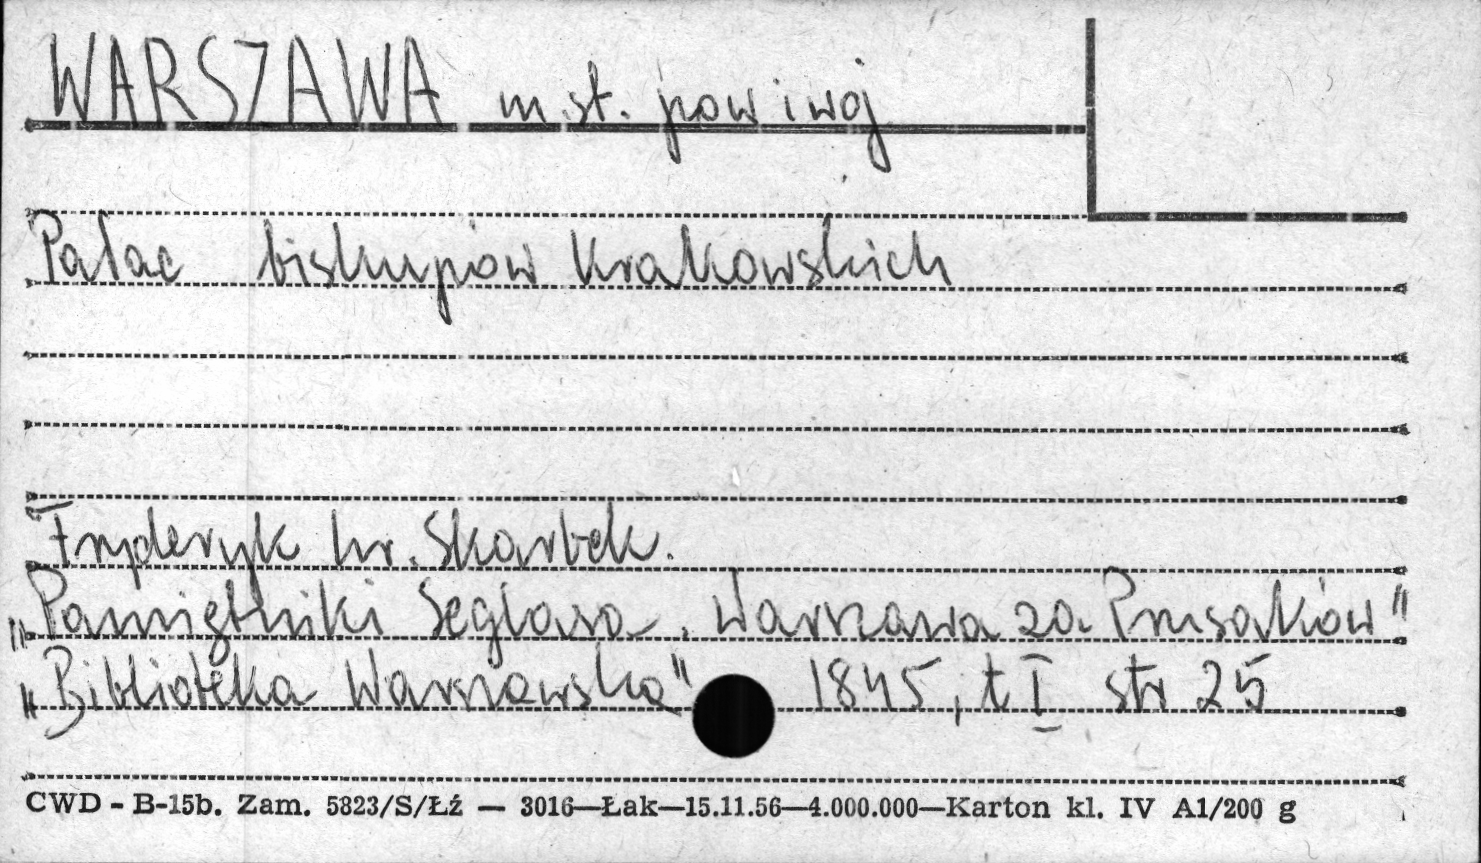 WARSZAWA m.st. pow i woj
Pałac biskupów Krakowskich
Fryderyk hr. Skarbek.
„Pamiętniki Seglasa. Warszawa za Prusaków"
„Biblioteka Warszawska" 1845, t I str 25
CWD - B-15b. Zam. 5823/S/Łź — 3016—Łak—15.11.56—4.000.000—Karton kl. IV A1/200 g